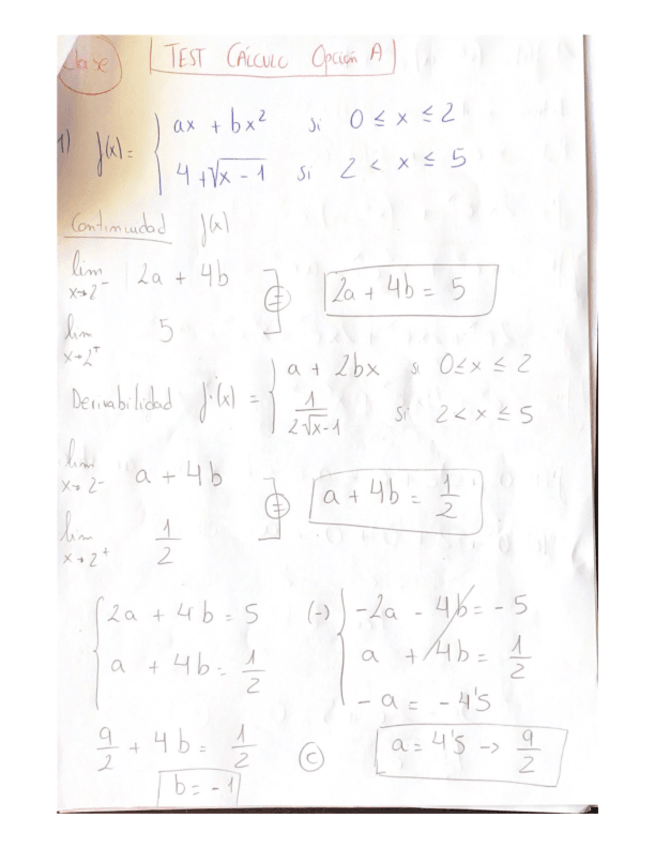 Clase
TEST CÁLCULO Opción A
1) f(x) = { ax + bx² si 0 ≤ x ≤ 2
4 + √x - 1 si 2 < x ≤ 5
Continuidad f(x)
lim x→2⁻ 2a + 4b
2a + 4b = 5
lim x→2⁺ 5
Derivabilidad f'(x) = { a + 2bx si 0 ≤ x ≤ 2
1/2√x-1 si 2 < x ≤ 5
lim x→2⁻ a + 4b
a + 4b = 1/2
lim x→2⁺ 1/2
{ 2a + 4b = 5 (-) { -2a - 4b = -5
a + 4b = 1/2 a + 4b = 1/2
-a = -4'5
9/2 + 4b = 1/2 (c) a = 4'5 → 9/2
b = -1